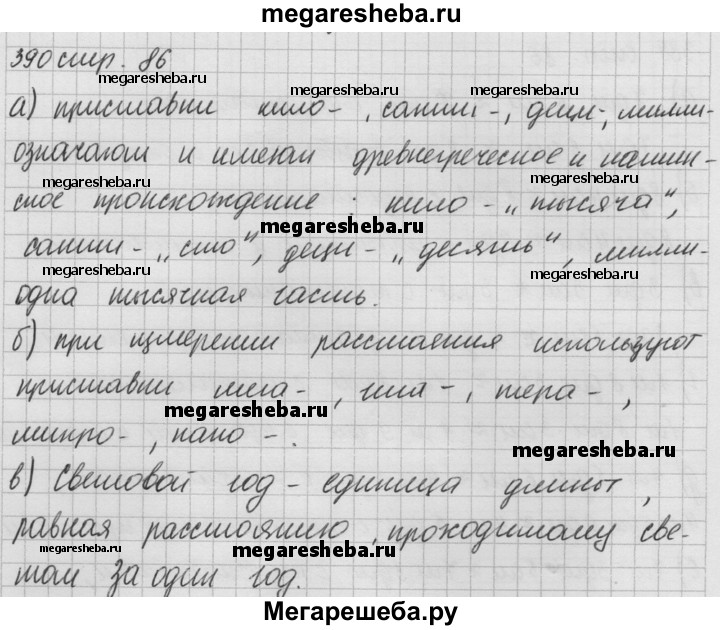 megaresheba.ru
390 стр. 86
megaresheba.ru
megaresheba.ru
а) приставки кило- , санти -, деци-, милли-
megaresheba.ru
megaresheba.ru
означают и имеют древнегреческое и латин-
megaresheba.ru
megaresheba.ru
ское происхождение : кило - „тысяча“,
megaresheba.ru
санти - „сто“, деци - „десять“, милли-
megaresheba.ru
megaresheba.ru
одна тысячная часть.
б) при измерении расстояния используют
приставки мега- , гига - , тера - ,
megaresheba.ru
микро- , нано - .
megaresheba.ru
в) Световой год - единица длины ,
равная расстоянию , проходимому све-
megaresheba.ru
megaresheba.ru
megaresheba.ru
том за один год.
Мегарешеба.ру